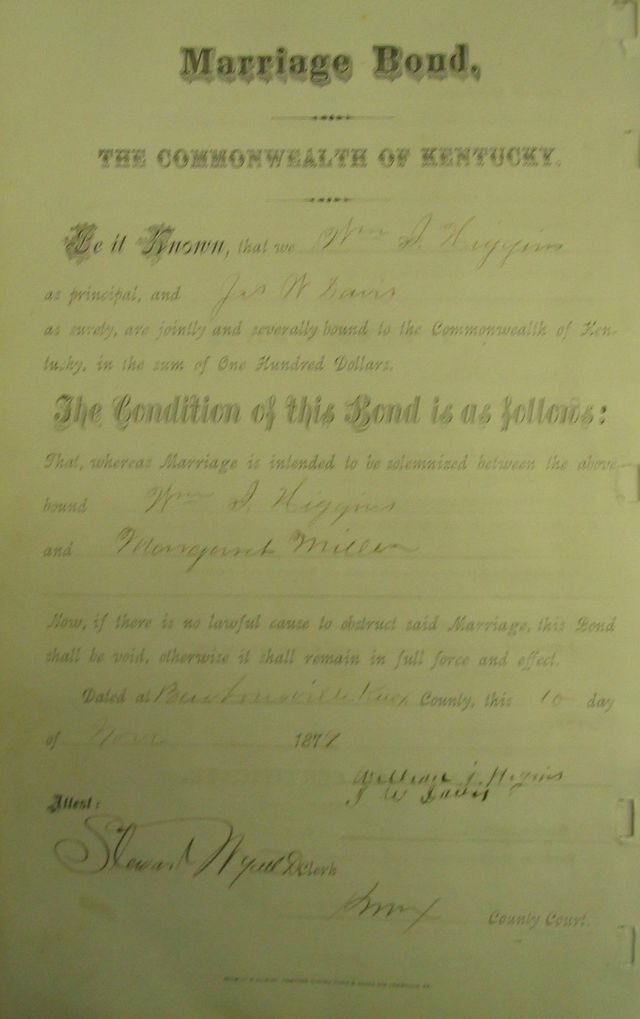 Marriage Bond,
THE COMMONWEALTH OF KENTUCKY.
Be it Known, that we Wm J. Higgins
as principal, and Jas W Davis
as surety, are jointly and severally bound to the Commonwealth of Ken-
tucky, in the sum of One Hundred Dollars.
The Condition of this Bond is as follows:
That, whereas Marriage is intended to be solemnized between the above
bound Wm J. Higgins
and Margaret Miller
Now, if there is no lawful cause to obstruct said Marriage, this Bond
shall be void, otherwise it shall remain in full force and effect.
Dated at Knox County, this 10 day
of Novr 187
William J. Higins
J W Davis
Attest:
Stewart DClerk
Knox County Court.